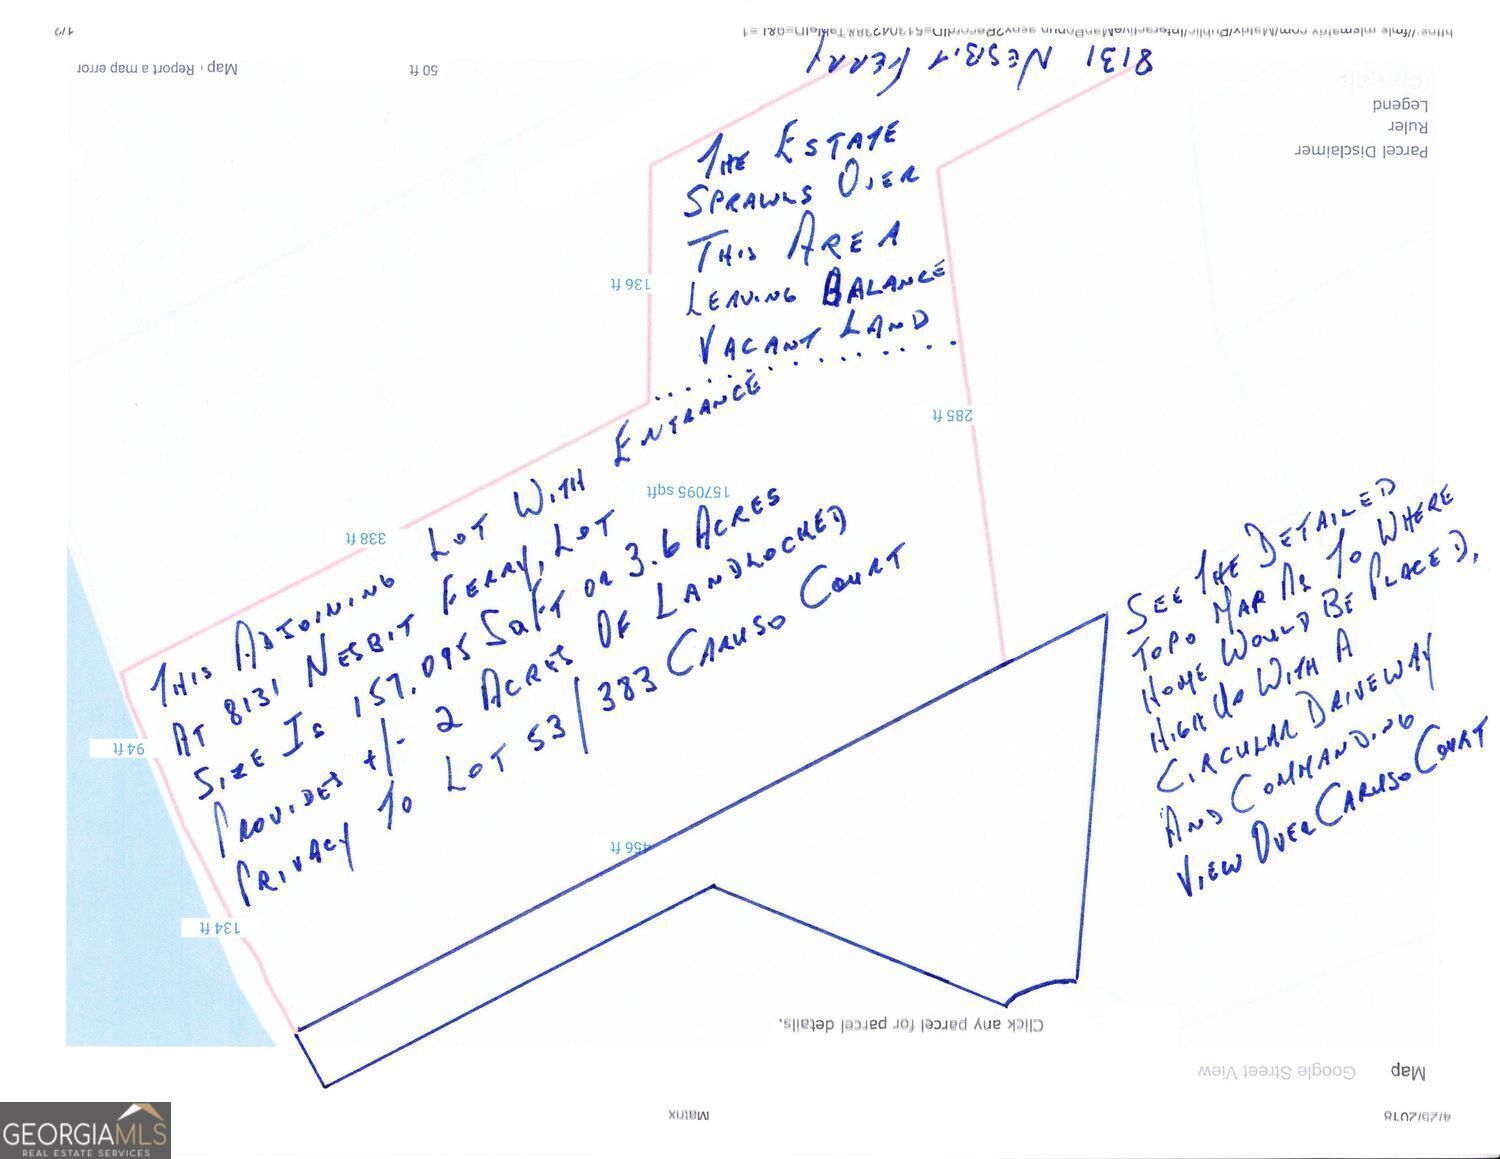 https://fmls.mlsmatrix.com/Matrix/Public/InteractiveMapPopup.aspx?RecordID=51304238&TableID=9&L=1
1/2
Map · Report a map error
50 ft
Google
Legend
Ruler
Parcel Disclaimer
8131 NESBIT FERRY
THE ESTATE
SPRAWLS OVER
THIS AREA
LEAVING BALANCE
VACANT LAND
136 ft
285 ft
338 ft
157095 sqft
94 ft
134 ft
456 ft
THIS ADJOINING LOT WITH ENTRANCE
AT 8131 NESBIT FERRY, LOT
SIZE IS 157,095 SQFT OR 3.6 ACRES
PROVIDES +/- 2 ACRES OF LANDLOCKED
PRIVACY TO LOT 53/383 CARUSO COURT
SEE THE DETAILED
TOPO MAP AS TO WHERE
HOME WOULD BE PLACED,
HIGH UP WITH A
CIRCULAR DRIVEWAY
AND COMMANDING
VIEW OVER CARUSO COURT
Click any parcel for parcel details.
Map Google Street View
Matrix
4/29/2018
GEORGIAMLS
REAL ESTATE SERVICES